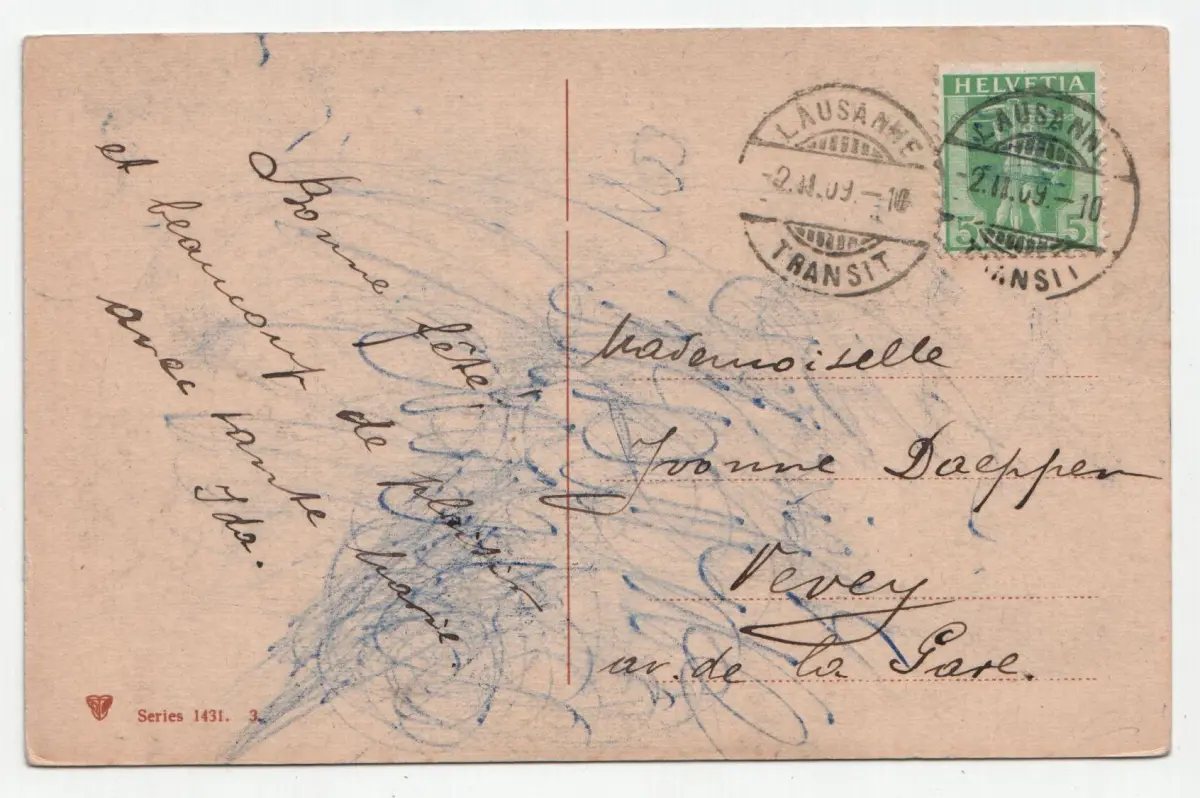 Bonne fête!
et beaucoup de plaisir
avec tante Marie.
Ida.
Series 1431. 3.
LAUSANNE
-2.II.09.-10
TRANSIT
HELVETIA
5 5
LAUSANNE
-2.II.09.-10
TRANSIT
Mademoiselle
Yvonne Daeppen
Vevey
av. de la Gare.